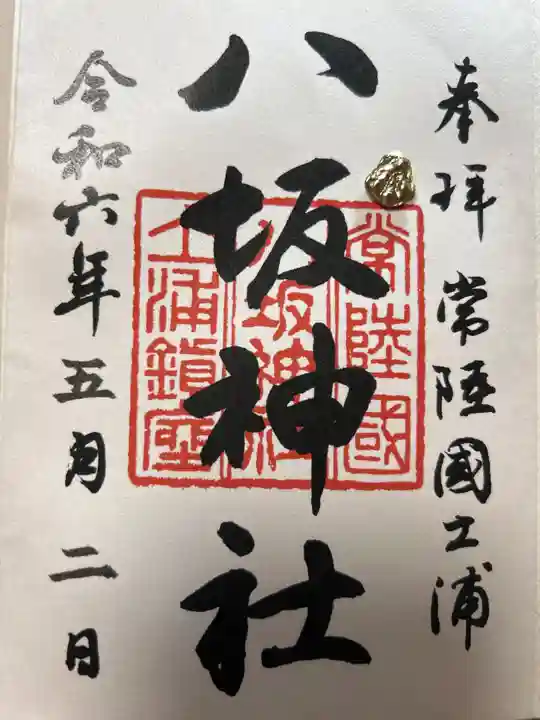 奉拝 常陸國土浦
八坂神社
常陸國
八坂神社
土浦鎮座
令和六年五月二日